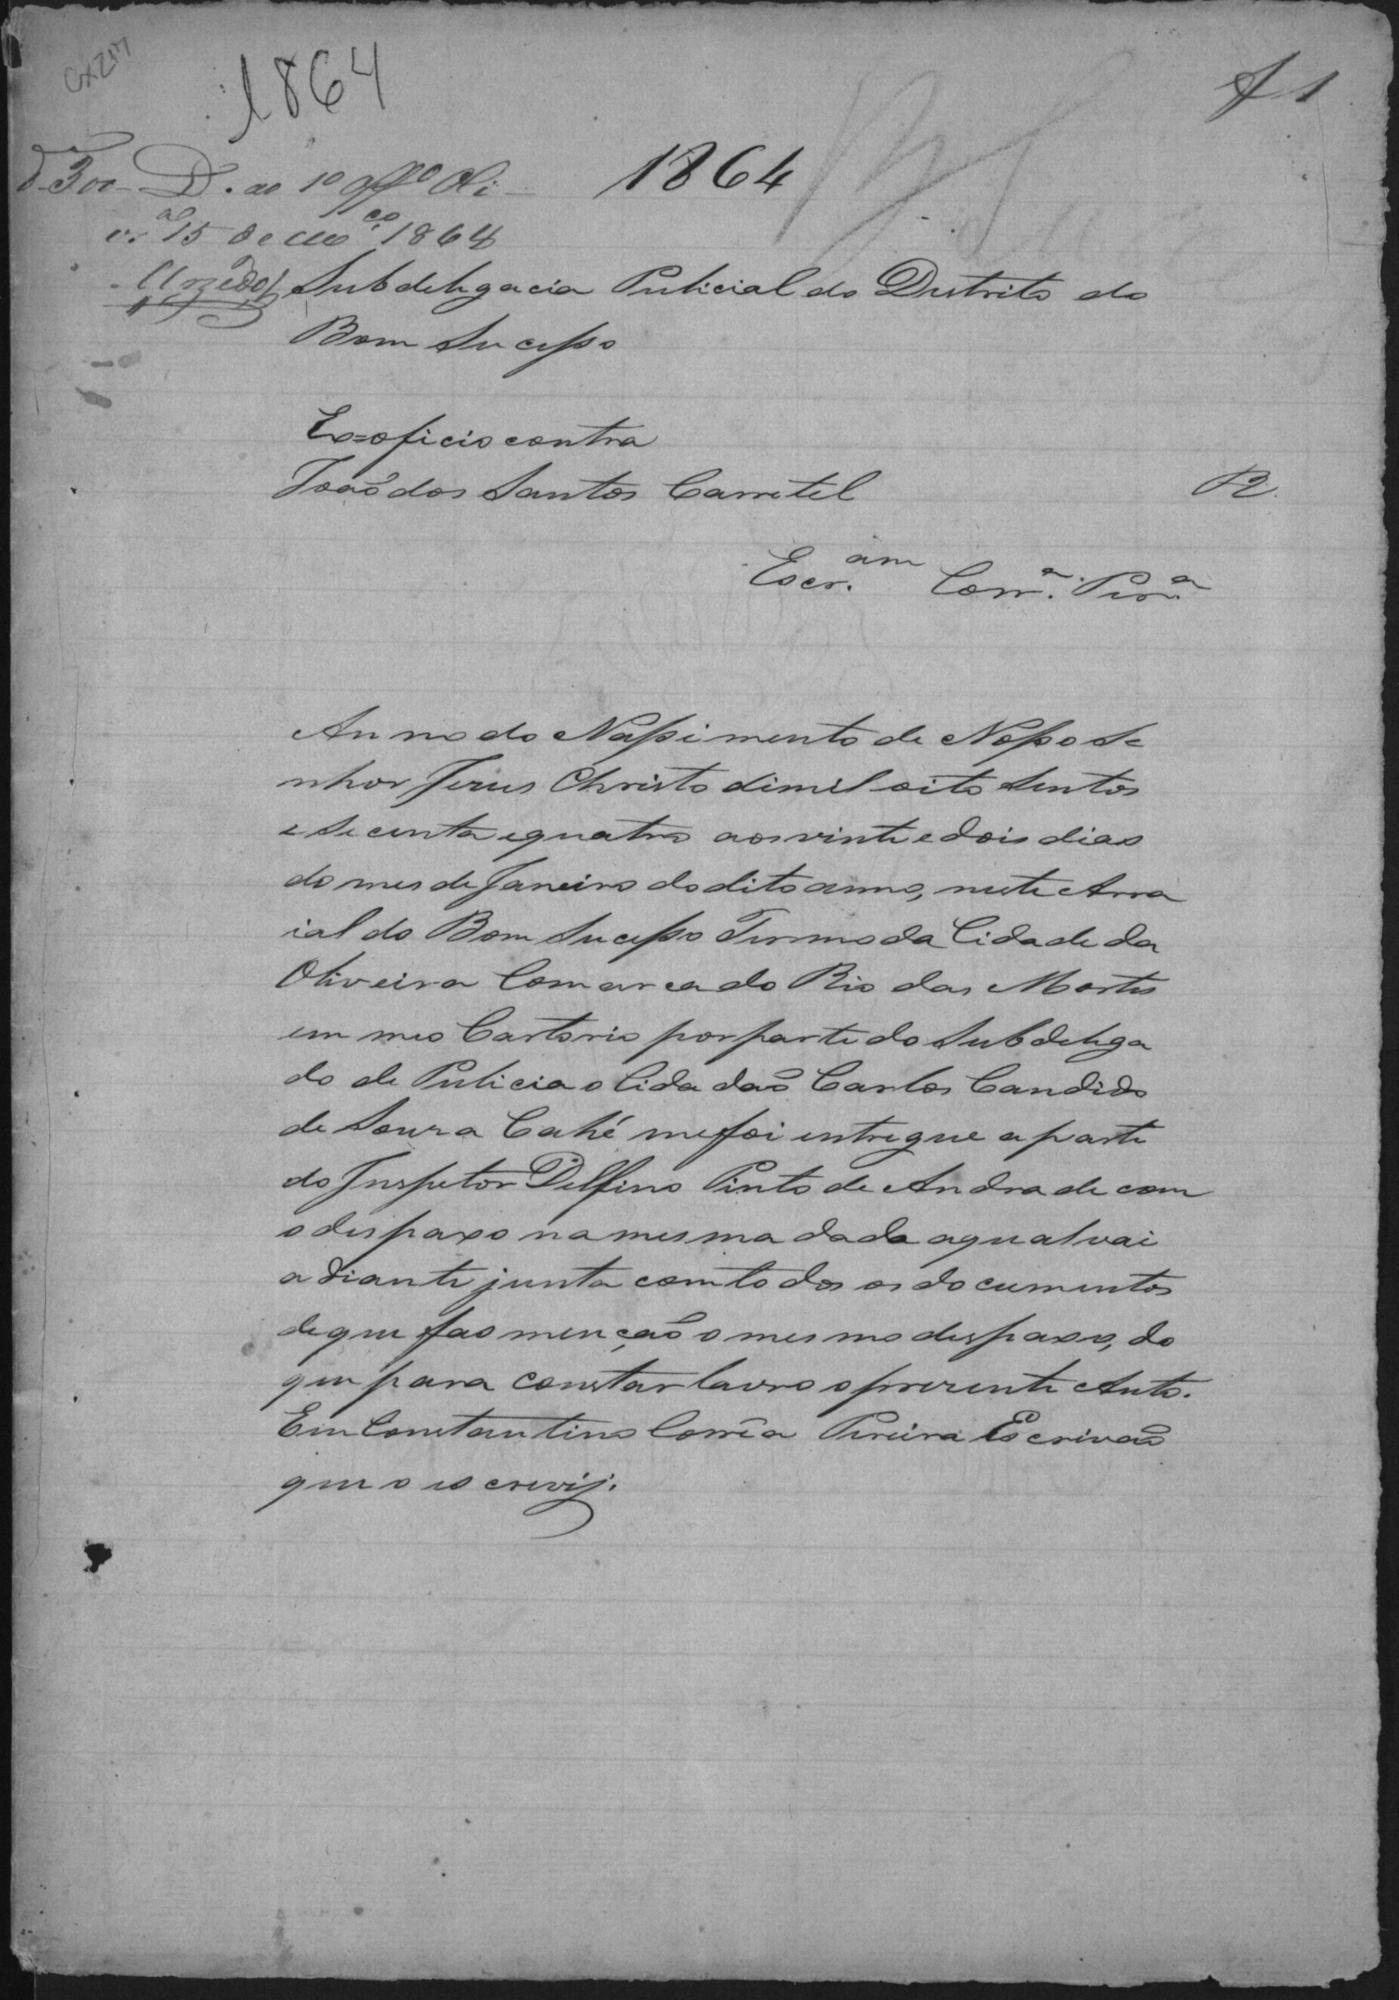 CX 217
1864
f 1
D. 300 D. ao 1º offº Oli
1864
vª 15 de Mçº 1864
Azedo
Subdelegacia Pulicial do Distrito do
Bom Sucesso
Ex=oficio contra
João dos Santos Carretel
R.
Escr.am Corr.ª Per.ª
Anno do Nassimento de Nosso Se
nhor Jezus Christo dimil oito Sentos
e Secenta equatro aos vinte e dois dias
do mes de Janeiro do dito anno, neste Arra
ial do Bom Sucesso Termo da Cidade da
Oliveira Comarca do Rio das Mortes
em meo Cartorio por parte do Subdelega
do de Pulicia o Cidadão Carlos Candido
de Souza Cahé me foi entregue a parte
do Inspetor Delfino Pinto de Andrade com
o despaxo na mesma dada aqual vai
adiante junta com todos os documentos
de que fas menção o mesmo despaxo, do
que para constar lavro o prezente Auto.
Eu Constantino Corrêa Pereira Escrivão
que o escrevij.